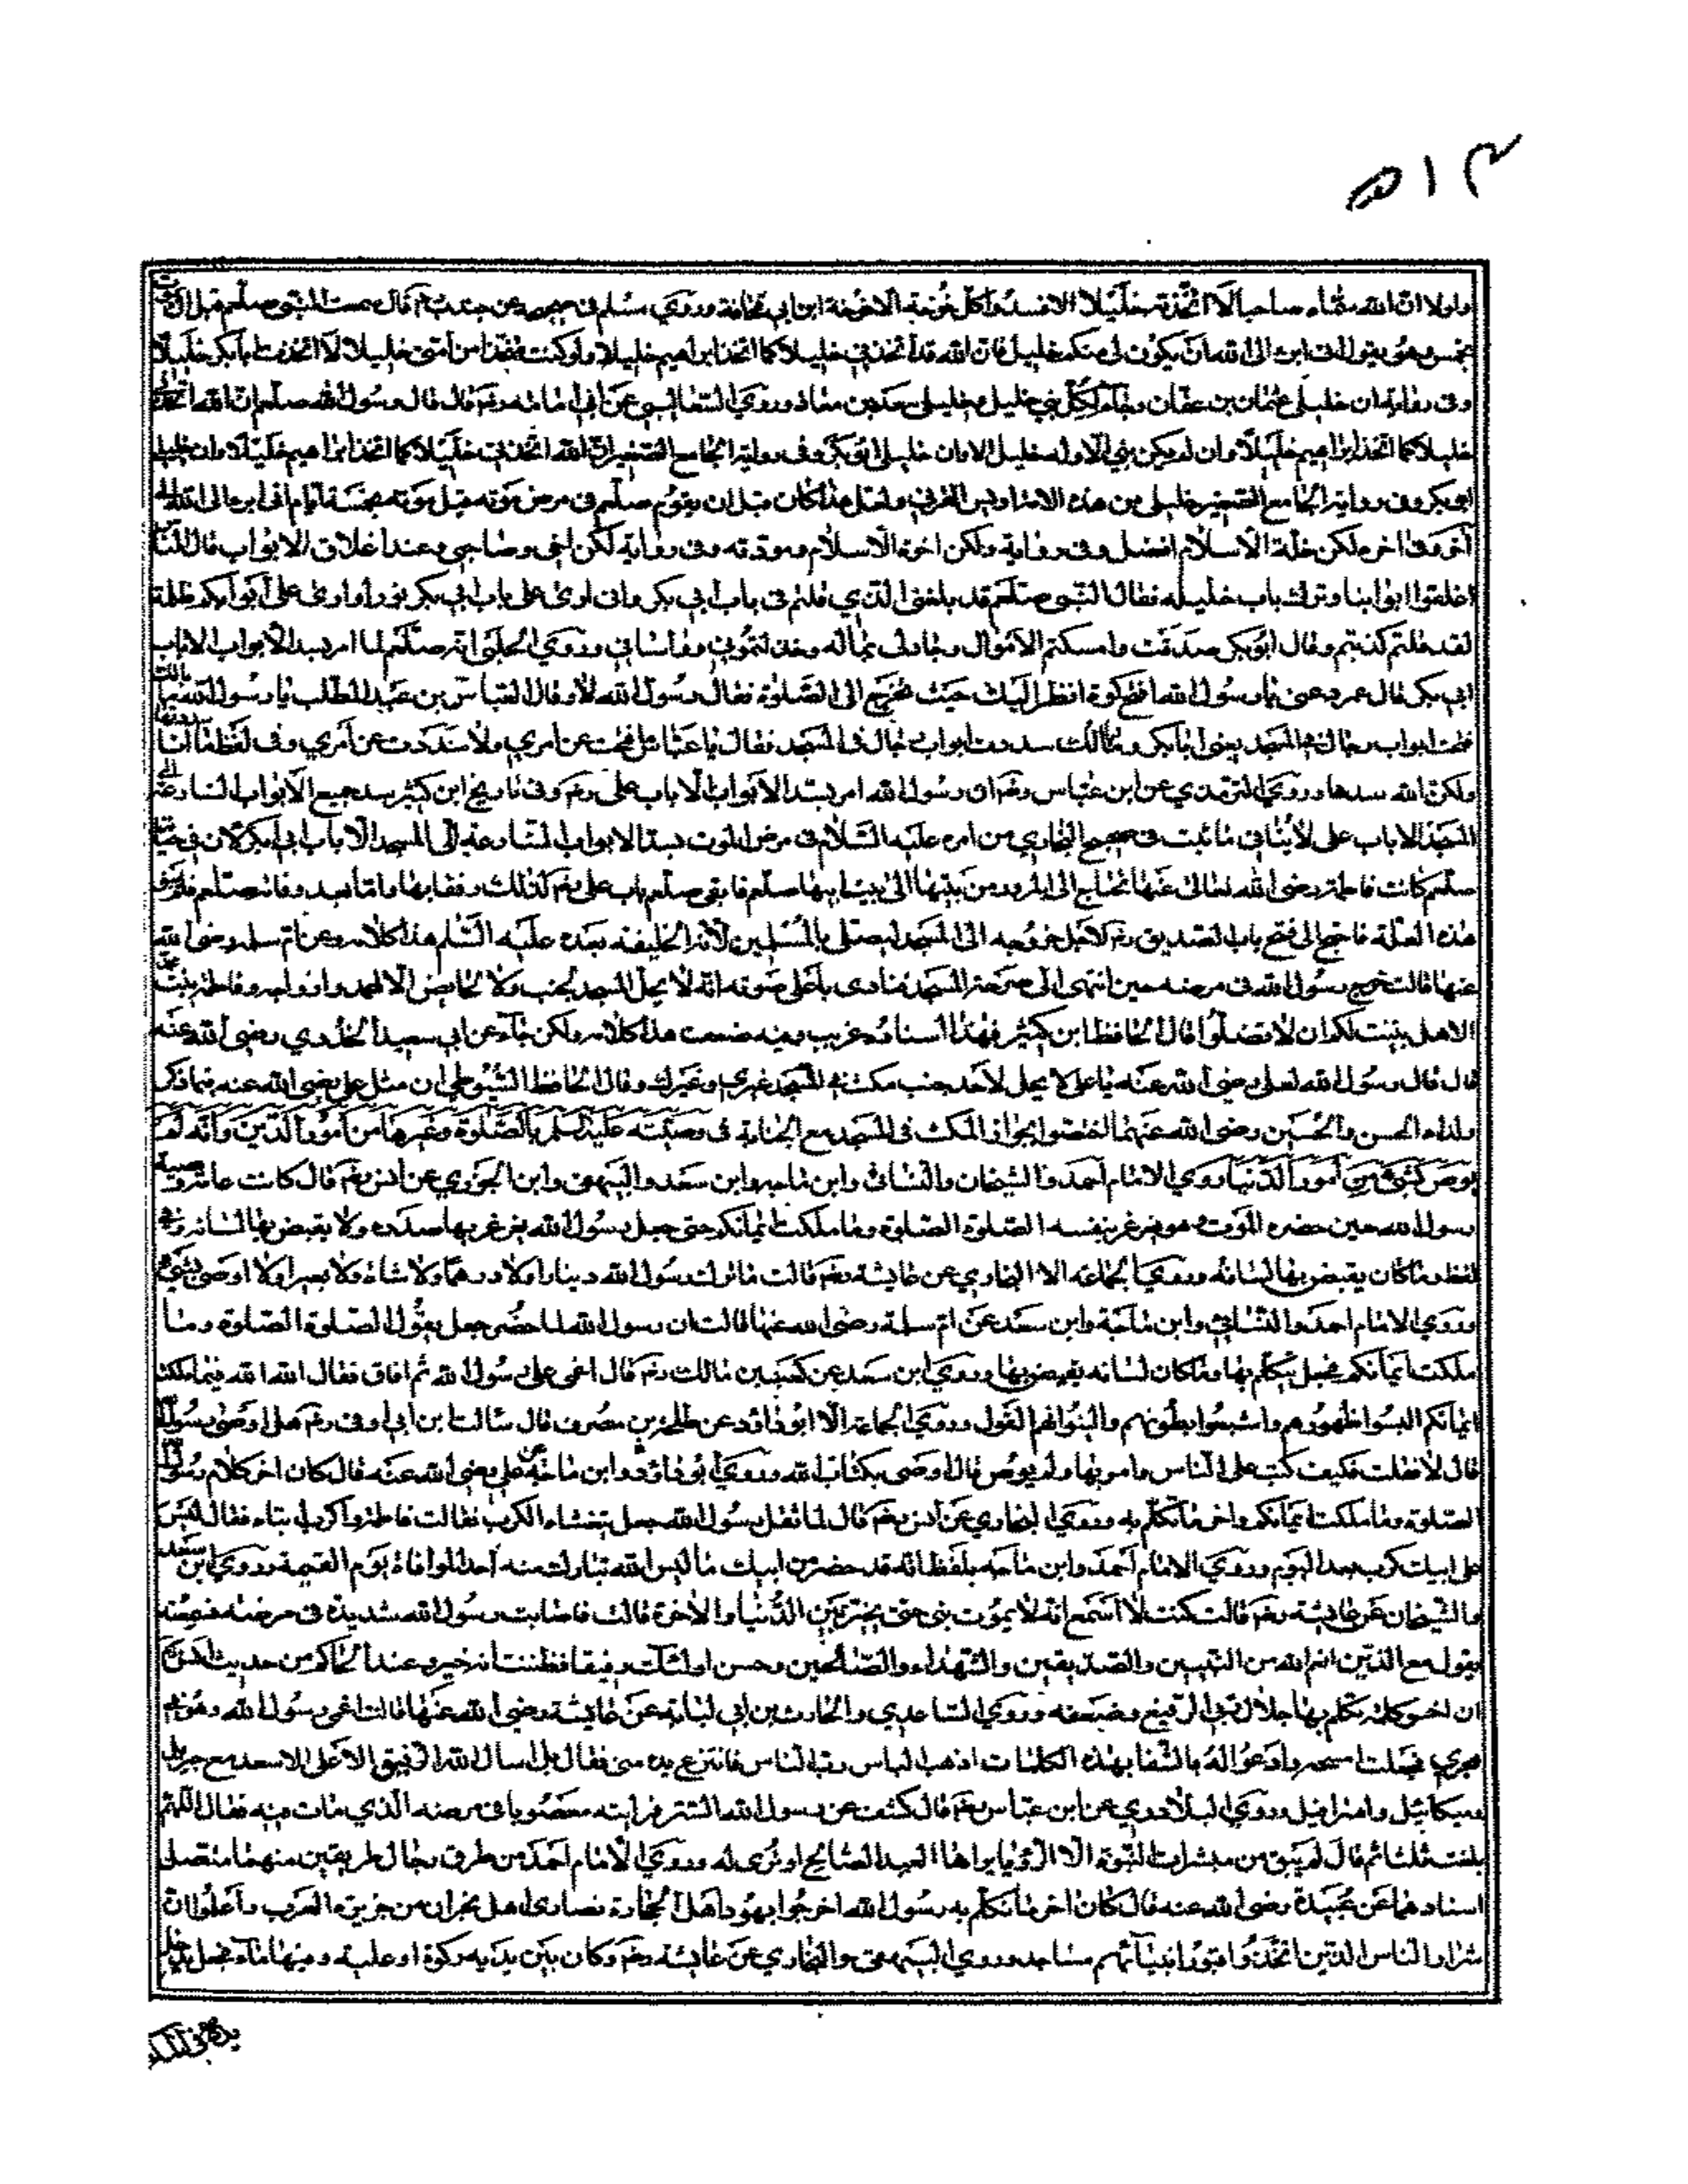 ٥١٣
ولولا ان الله صاحبا لا اتخذته خليلا الا فسدوا كل خوخة الا خوخة ابن ابي قحافة وروي مسلم في صحيحه عن جندب قال سمعت النبي صلعم قبل ان
بخمس وهو يقول اني ابرء الى الله ان يكون لي منكم خليل فان الله قد اتخذني خليلا كما اتخذ ابراهيم خليلا ولو كنت متخذا من امتي خليلا لا اتخذت ابا بكر خليلا
وفي رواية ان خليلي عثمان بن عفان وجاء لكل نبي خليل وخليلي سعد بن معاذ وروي الثعالبي عن ابي امامة رضم قال قال رسول الله صلعم ان الله اتخذ
خليلا كما اتخذ ابراهيم خليلا وان لم يكن نبي الا وله خليل الا وان خليلي ابو بكر وفي رواية الجامع الصغير ان الله اتخذني خليلا كما اتخذ ابراهيم خليلا وان خليلي
ابو بكر وفي رواية الجامع الصغير خليلي من هذه الامة اويس القرني ولعل هذا كان قبل ان يقوم صلعم في مرض موته قبل موته بخمسة ايام اني ابرء الى الله
اخر وفي اخر ولكن خلة الاسلام افضل وفي رواية ولكن اخوة الاسلام ومودته وفي رواية لكن اخي وصاحبي وعند اغلاق الابواب قال
اغلقوا ابوابنا وترك باب خليله فقال النبي صلعم قد بلغني الذي قلتم في باب ابي بكر واني ارى على باب ابي بكر نورا وارى على ابوابكم ظلمة
لقد قلتم كذبتم وقال ابو بكر صدقت وامسكتم الاموال وجاد لي بماله وواساني وروي انه صلعم لما امر بسد الابواب الا باب
ابي بكر قال عمر دعني يا رسول الله افتح كوة انظر اليك حيث تخرج الى الصلوة فقال رسول الله لا وقال العباس بن عبد المطلب يا رسول الله
فتحت ابواب رجال في المسجد يعني ابا بكر وما بالك سددت ابواب رجال في المسجد فقال يا عباس ما فتحت عن امري ولا سددت عن امري وفي لفظ ما انا
ولكن الله سدها وروي الترمذي عن ابن عباس رضم ان رسول الله امر بسد الابواب الا باب علي رضم وفي تاريخ ابن كثير سد جميع الابواب الشارعة
المسجد الا باب علي لا ينافي ما ثبت في صحيح البخاري من امره عليه السلام في مرض الموت بسد الابواب الشارعة الى المسجد الا باب ابي بكر لان في
صلعم كانت فاطمة رضي الله تعالى عنها تحتاج الى المرور من بيتها الى بيت ابيها صلعم فابقى صلعم باب علي رضم كذلك رفقا بها واما بعد وفاته صلعم
هذه العلة فاحتيج الى فتح باب الصديق رضم لاجل خروجه الى المسجد ليصلي بالمسلمين لانه الخليفة بعده عليه السلم هذا كلامه وعن ام سلمه رضي الله
عنها قالت خرج رسول الله في مرضه حين انتهى الى صرحة المسجد فنادى باعلى صوته انه لا يحل المسجد لجنب ولا لحائض الا لمحمد وازواجه وفاطمة بنت
الا هل بينت لكم ان لا تضلوا قال الحافظ ابن كثير فهذا اسناده غريب وفيه ضعف هذا كلامه ولكن جاء عن ابي سعيد الخدري رضي الله عنه
قال قال رسول الله لعلي رضي الله عنه يا علي لا يحل لاحد يجنب مكث في المسجد غيري وغيرك وقال الحافظ السيوطي ان مثل علي رضي الله عنه فيما ذكر
ولداه الحسن والحسين رضي الله عنهما اختصوا بجواز المكث في المسجد مع الجنابة في وصيته عليه السلم بالصلوة وغيرها من امور الدين وانه لم
يوص بشيء من امور الدنيا روي الامام احمد والشيخان والنسائي وابن ماجه وابن سعد والبيهقي وابن الجوزي عن انس رضم قال كانت عامة
رسول الله حين حضره الموت وهو يغرغر بنفسه الصلوة الصلوة وما ملكت ايمانكم حتى جعل رسول الله يغرغر بها صدره ولا يفيض بها لسانه وفي
لفظ وما كان يفيض بها لسانه وروي الجماعة الا البخاري عن عايشة رضم قالت ما ترك رسول الله دينارا ولا درهما ولا شاة ولا بعيرا ولا اوصى بشيء
وروي الامام احمد والنسائي وابن ماجة وابن سعد عن ام سلمة رضي الله عنها قالت ان رسول الله لما حضر جعل يقول الصلوة الصلوة وما
ملكت ايمانكم فجعل يتكلم بها وما كان لسانه يفيض بها وروي ابن سعد عن كعب بن مالك رضم قال اغمي على رسول الله ثم افاق فقال الله الله فيما ملكت
ايمانكم البسوا ظهورهم واشبعوا بطونهم والينوا لهم القول وروي الجماعة الا ابو داود عن طلحة بن مصرف قال سالت ابن ابي اوفى رضم هل اوصى رسول الله
قال لا فقلت فكيف كتب على الناس وامر بها ولم يوص قال اوصى بكتاب الله وروي ابو داود وابن ماجة عن علي رضي الله عنه قال كان اخر كلام رسول الله
الصلوة وما ملكت ايمانكم واخر ما تكلم به وروي البخاري عن انس رضم قال لما ثقل رسول الله جعل يتغشاه الكرب فقالت فاطمة واكرب ابتاه فقال ليس
على ابيك كرب بعد اليوم وروي الامام احمد وابن ماجه بلفظ انه قد حضر من ابيك ما ليس الله تبارك منه احدا لموافاة يوم القيمة وروي ابن سعد
والشيخان عن عايشة رضم قالت كنت اسمع انه لا يموت نبي حتى يخير بين الدنيا والاخرة قالت فاصابت رسول الله شديدة في مرضه فسمعته
يقول مع الذين انعم الله من النبيين والصديقين والشهداء والصالحين وحسن اولئك رفيقا فظننت انه خير وعند الحاكم من حديث انس
ان اخر كلمة تكلم بها جلال ربي الرفيع وروي الساعدي والحارث بن ابي عن عايشة رضي الله عنها قالت اغمي رسول الله وهو في
حجري فجعلت امسحه وادعو له بالشفا بهذه الكلمات اذهب الباس رب الناس فانتزع يده مني فقال بل اسال الله الرفيق الاعلى الاسعد مع جبريل
وميكائيل واسرافيل وروي البلاذري عن ابن عباس رضم قال كشف عن رسول الله الستر فرايته معصوبا في مرضه الذي مات فيه فقال اللهم
بلغت ثلثا ثم قال لم يبق من مبشرات النبوة الا الرؤيا يراها العبد الصالح او ترى له وروي الامام احمد من طرق رجال طريقين منهما متصل
اسنادهما عن عبيدة رضي الله عنه قال كان اخر ما تكلم به رسول الله اخرجوا يهود اهل الحجاز ونصارى اهل نجران من جزيرة العرب واعلموا ان
شرار الناس الذين اتخذوا قبور انبيائهم مساجد وروي البيهقي والبخاري عن عايشة رضم وكان بين يديه ركوة او علبة وفيها ماء فجعل يدخل
يده في الماء